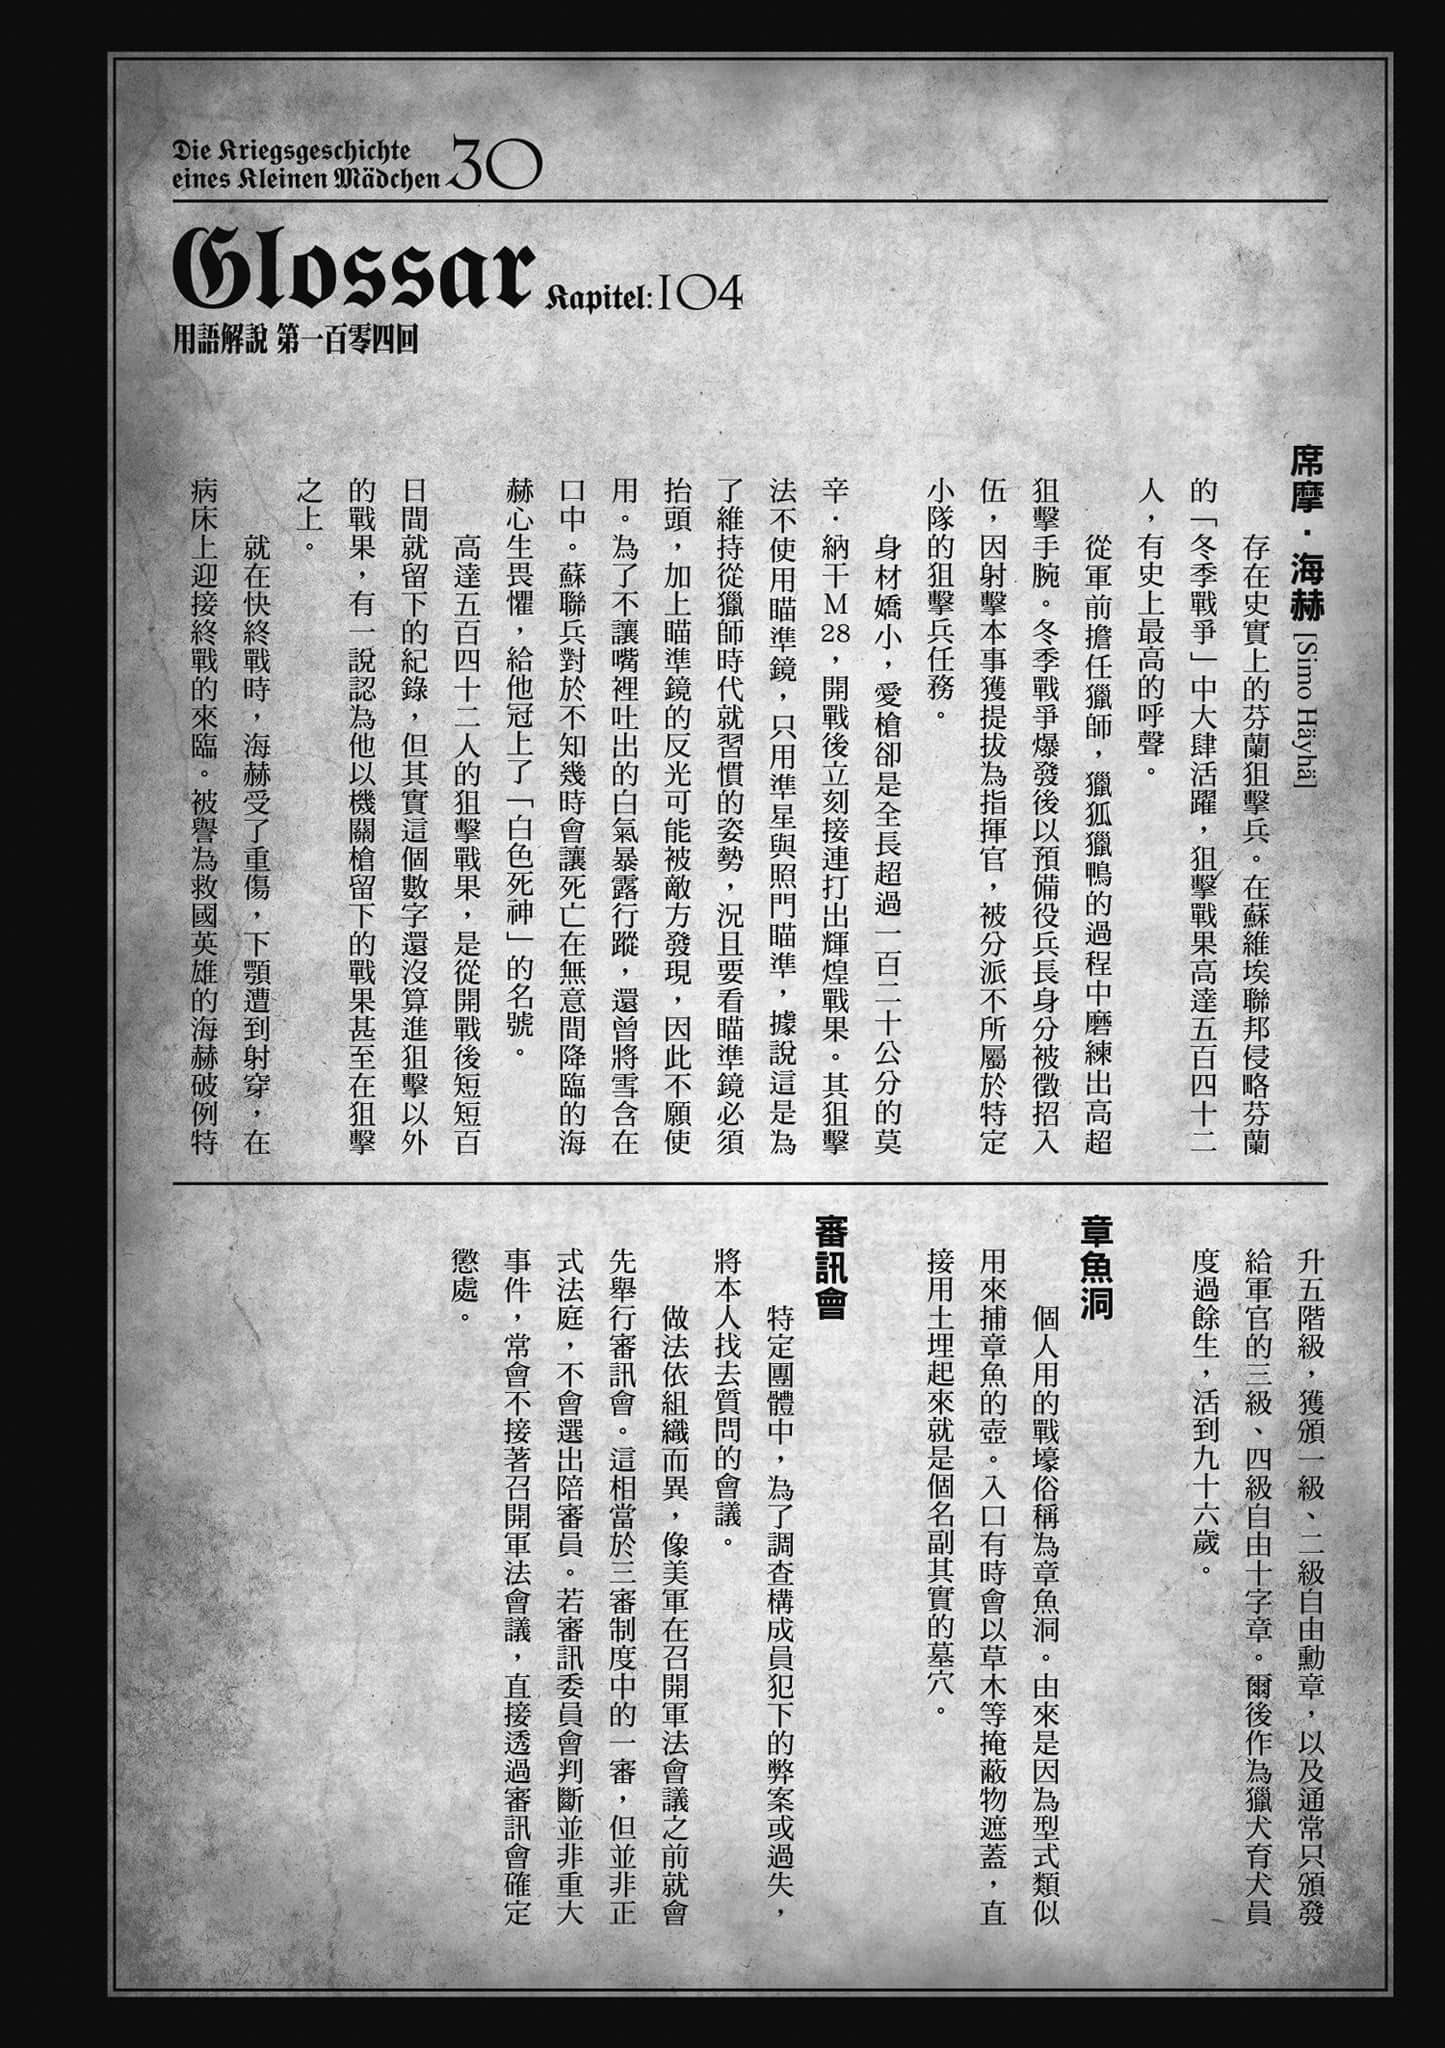 Die Kriegsgeschichte
eines Kleinen Mädchen 30
Glossar Kapitel:104
用語解說 第一百零四回
席摩・海赫 [Simo Häyhä]
存在史實上的芬蘭狙擊兵。在蘇維埃聯邦侵略芬蘭
的「冬季戰爭」中大肆活躍，狙擊戰果高達五百四十二
人，有史上最高的呼聲。
從軍前擔任獵師，獵狐獵鴨的過程中磨練出高超
狙擊手腕。冬季戰爭爆發後以預備役兵長身分被徵招入
伍，因射擊本事獲提拔為指揮官，被分派不所屬於特定
小隊的狙擊兵任務。
身材嬌小，愛槍卻是全長超過一百二十公分的莫
辛・納干M28，開戰後立刻接連打出輝煌戰果。其狙擊
法不使用瞄準鏡，只用準星與照門瞄準，據說這是為
了維持從獵師時代就習慣的姿勢，況且要看瞄準鏡必須
抬頭，加上瞄準鏡的反光可能被敵方發現，因此不願使
用。為了不讓嘴裡吐出的白氣暴露行蹤，還曾將雪含在
口中。蘇聯兵對於不知幾時會讓死亡在無意間降臨的海
赫心生畏懼，給他冠上了「白色死神」的名號。
高達五百四十二人的狙擊戰果，是從開戰後短短百
日間就留下的紀錄，但其實這個數字還沒算進狙擊以外
的戰果，有一說認為他以機關槍留下的戰果甚至在狙擊
之上。
就在快終戰時，海赫受了重傷，下顎遭到射穿，在
病床上迎接終戰的來臨。被譽為救國英雄的海赫破例特
升五階級，獲頒一級、二級自由勳章，以及通常只頒發
給軍官的三級、四級自由十字章。爾後作為獵犬育犬員
度過餘生，活到九十六歲。
章魚洞
個人用的戰壕俗稱為章魚洞。由來是因為型式類似
用來捕章魚的壺。入口有時會以草木等掩蔽物遮蓋，直
接用土埋起來就是個名副其實的墓穴。
審訊會
特定團體中，為了調查構成員犯下的弊案或過失，
將本人找去質問的會議。
做法依組織而異，像美軍在召開軍法會議之前就會
先舉行審訊會。這相當於三審制度中的一審，但並非正
式法庭，不會選出陪審員。若審訊委員會判斷並非重大
事件，常會不接著召開軍法會議，直接透過審訊會確定
懲處。